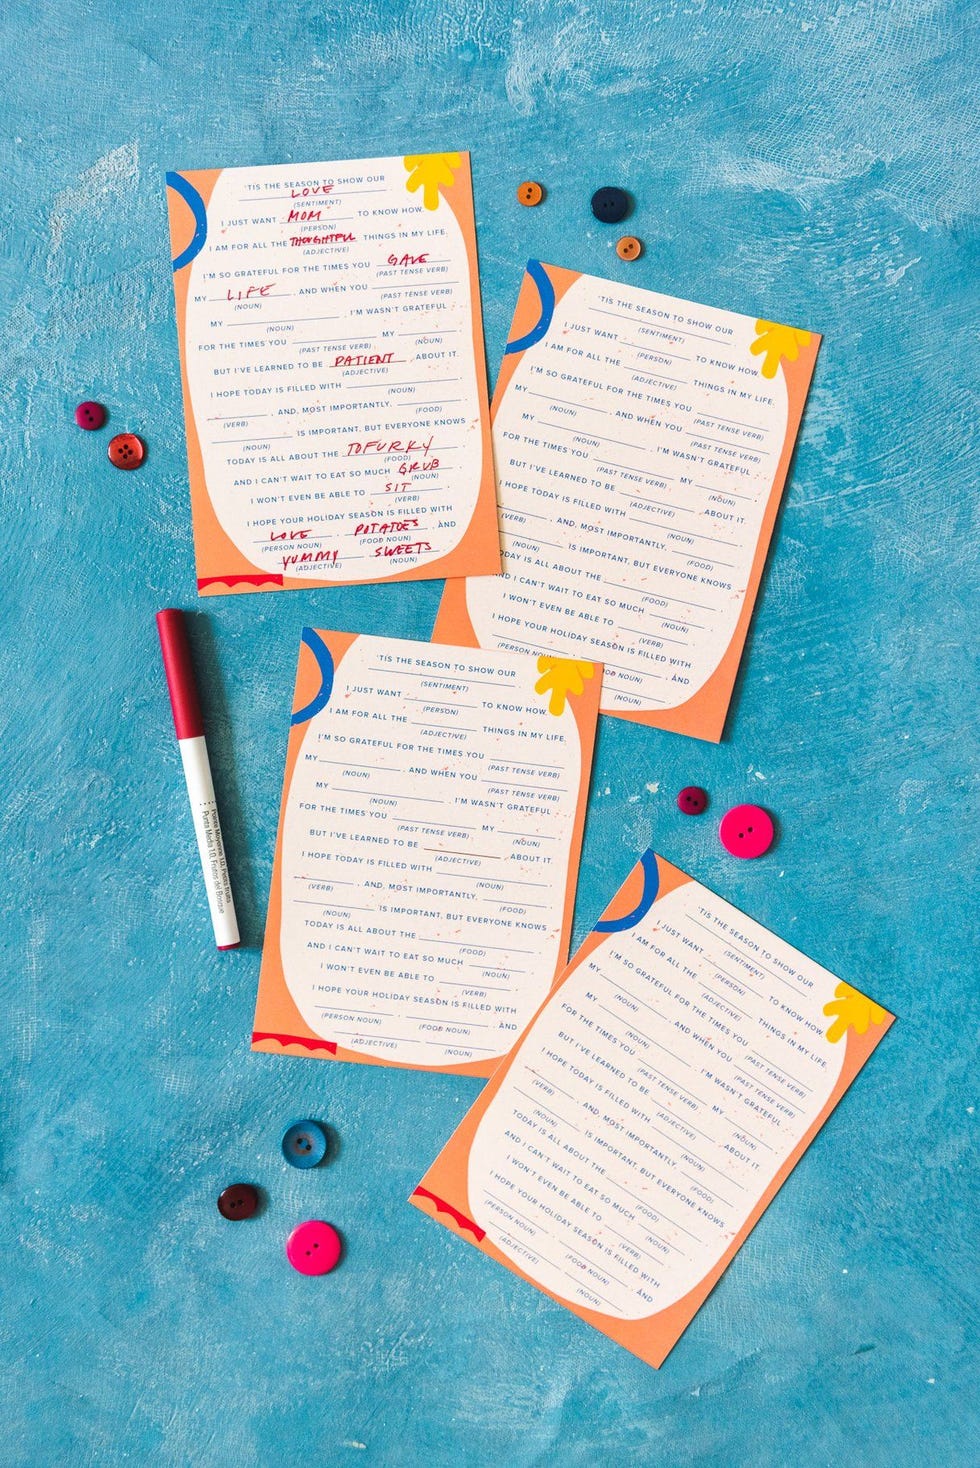 'TIS THE SEASON TO SHOW OUR
LOVE
(SENTIMENT)
I JUST WANT MOM TO KNOW HOW
(PERSON)
I AM FOR ALL THE THOUGHTFUL THINGS IN MY LIFE.
(ADJECTIVE)
I'M SO GRATEFUL FOR THE TIMES YOU GAVE
(PAST TENSE VERB)
MY LIFE, AND WHEN YOU
(NOUN) (PAST TENSE VERB)
MY , I'M WASN'T GRATEFUL
(NOUN)
FOR THE TIMES YOU MY
(PAST TENSE VERB) (NOUN)
BUT I'VE LEARNED TO BE PATIENT ABOUT IT.
(ADJECTIVE)
I HOPE TODAY IS FILLED WITH ,
(NOUN)
, AND, MOST IMPORTANTLY, .
(VERB) (FOOD)
IS IMPORTANT, BUT EVERYONE KNOWS
(NOUN)
TODAY IS ALL ABOUT THE TOFURKY
(FOOD)
AND I CAN'T WAIT TO EAT SO MUCH GRUB
(NOUN)
I WON'T EVEN BE ABLE TO SIT.
(VERB)
I HOPE YOUR HOLIDAY SEASON IS FILLED WITH
LOVE, POTATOES, AND
(PERSON NOUN) (FOOD NOUN)
YUMMY SWEETS.
(ADJECTIVE) (NOUN)
'TIS THE SEASON TO SHOW OUR
(SENTIMENT)
I JUST WANT TO KNOW HOW
(PERSON)
I AM FOR ALL THE THINGS IN MY LIFE.
(ADJECTIVE)
I'M SO GRATEFUL FOR THE TIMES YOU
(PAST TENSE VERB)
MY , AND WHEN YOU
(NOUN) (PAST TENSE VERB)
MY , I'M WASN'T GRATEFUL
(NOUN)
FOR THE TIMES YOU MY
(PAST TENSE VERB) (NOUN)
BUT I'VE LEARNED TO BE ABOUT IT.
(ADJECTIVE)
I HOPE TODAY IS FILLED WITH ,
(NOUN)
, AND, MOST IMPORTANTLY, .
(VERB) (FOOD)
IS IMPORTANT, BUT EVERYONE KNOWS
(NOUN)
ODAY IS ALL ABOUT THE
(FOOD)
AND I CAN'T WAIT TO EAT SO MUCH
(NOUN)
I WON'T EVEN BE ABLE TO .
(VERB)
I HOPE YOUR HOLIDAY SEASON IS FILLED WITH
, AND
(PERSON NOUN) OD NOUN)
(NOUN)
'TIS THE SEASON TO SHOW OUR
(SENTIMENT)
I JUST WANT TO KNOW HOW
(PERSON)
I AM FOR ALL THE THINGS IN MY LIFE.
(ADJECTIVE)
I'M SO GRATEFUL FOR THE TIMES YOU
(PAST TENSE VERB)
MY , AND WHEN YOU
(NOUN) (PAST TENSE VERB)
MY , I'M WASN'T GRATEFUL
(NOUN)
FOR THE TIMES YOU MY
(PAST TENSE VERB) (NOUN)
BUT I'VE LEARNED TO BE ABOUT IT.
(ADJECTIVE)
I HOPE TODAY IS FILLED WITH ,
(NOUN)
, AND, MOST IMPORTANTLY, .
(VERB) (FOOD)
IS IMPORTANT, BUT EVERYONE KNOWS
(NOUN)
TODAY IS ALL ABOUT THE
(FOOD)
AND I CAN'T WAIT TO EAT SO MUCH
(NOUN)
I WON'T EVEN BE ABLE TO .
(VERB)
I HOPE YOUR HOLIDAY SEASON IS FILLED WITH
, , AND
(PERSON NOUN) (FOOD NOUN)
(ADJECTIVE) (NOUN)
Pointe Moyenne 1.0, Petits fruits
Punta Media 1.0, Frutos del Bosque
'TIS THE SEASON TO SHOW OUR
(SENTIMENT)
I JUST WANT TO KNOW HOW
(PERSON)
I AM FOR ALL THE THINGS IN MY LIFE.
(ADJECTIVE)
I'M SO GRATEFUL FOR THE TIMES YOU
(PAST TENSE VERB)
MY , AND WHEN YOU
(NOUN) (PAST TENSE VERB)
MY , I'M WASN'T GRATEFUL
(NOUN)
FOR THE TIMES YOU MY
(PAST TENSE VERB) (NOUN)
BUT I'VE LEARNED TO BE ABOUT IT.
(ADJECTIVE)
I HOPE TODAY IS FILLED WITH ,
(NOUN)
, AND, MOST IMPORTANTLY, .
(VERB) (FOOD)
IS IMPORTANT, BUT EVERYONE KNOWS
(NOUN)
TODAY IS ALL ABOUT THE
(FOOD)
AND I CAN'T WAIT TO EAT SO MUCH
(NOUN)
I WON'T EVEN BE ABLE TO .
(VERB)
I HOPE YOUR HOLIDAY SEASON IS FILLED WITH
, , AND
(PERSON NOUN) (FOOD NOUN)
(ADJECTIVE) (NOUN)